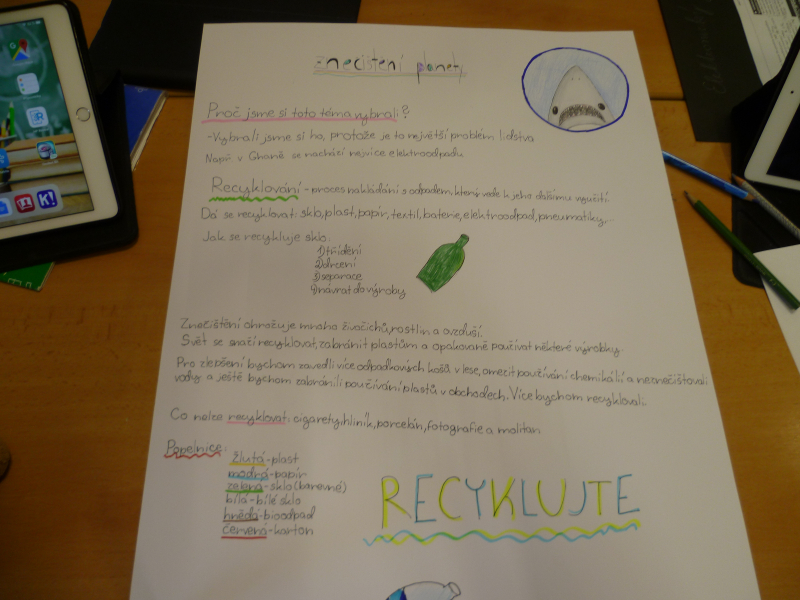 znečištění planety
Proč jsme si toto téma vybrali?
-Vybrali jsme si ho, protože je to největší problém lidstva
Např. v Ghaně se nachází nejvíce elektroodpadu
Recyklování - proces nakládání s odpadem, který vede k jeho dalšímu využití.
Dá se recyklovat: sklo, plast, papír, textil, baterie, elektroodpad, pneumatiky,..
Jak se recykluje sklo:
1) třídění
2) drcení
3) separace
4) návrat do výroby
Znečištění ohrožuje mnoho živočichů, rostlin a ovzduší.
Svět se snaží recyklovat, zabránit plastům a opakovaně používat některé výrobky.
Pro zlepšení bychom zavedli více odpadkových košů v lese, omezit používání chemikálií a neznečišťovali
vody a ještě bychom zabránili používání plastů v obchodech. Více bychom recyklovali.
Co nelze recyklovat: cigarety, hliník, porcelán, fotografie a molitan
Popelnice:
žlutá-plast
modrá-papír
zelená-sklo (barevné)
bílá-bílé sklo
hnědá-bioodpad
červená-karton
RECYKLUJTE